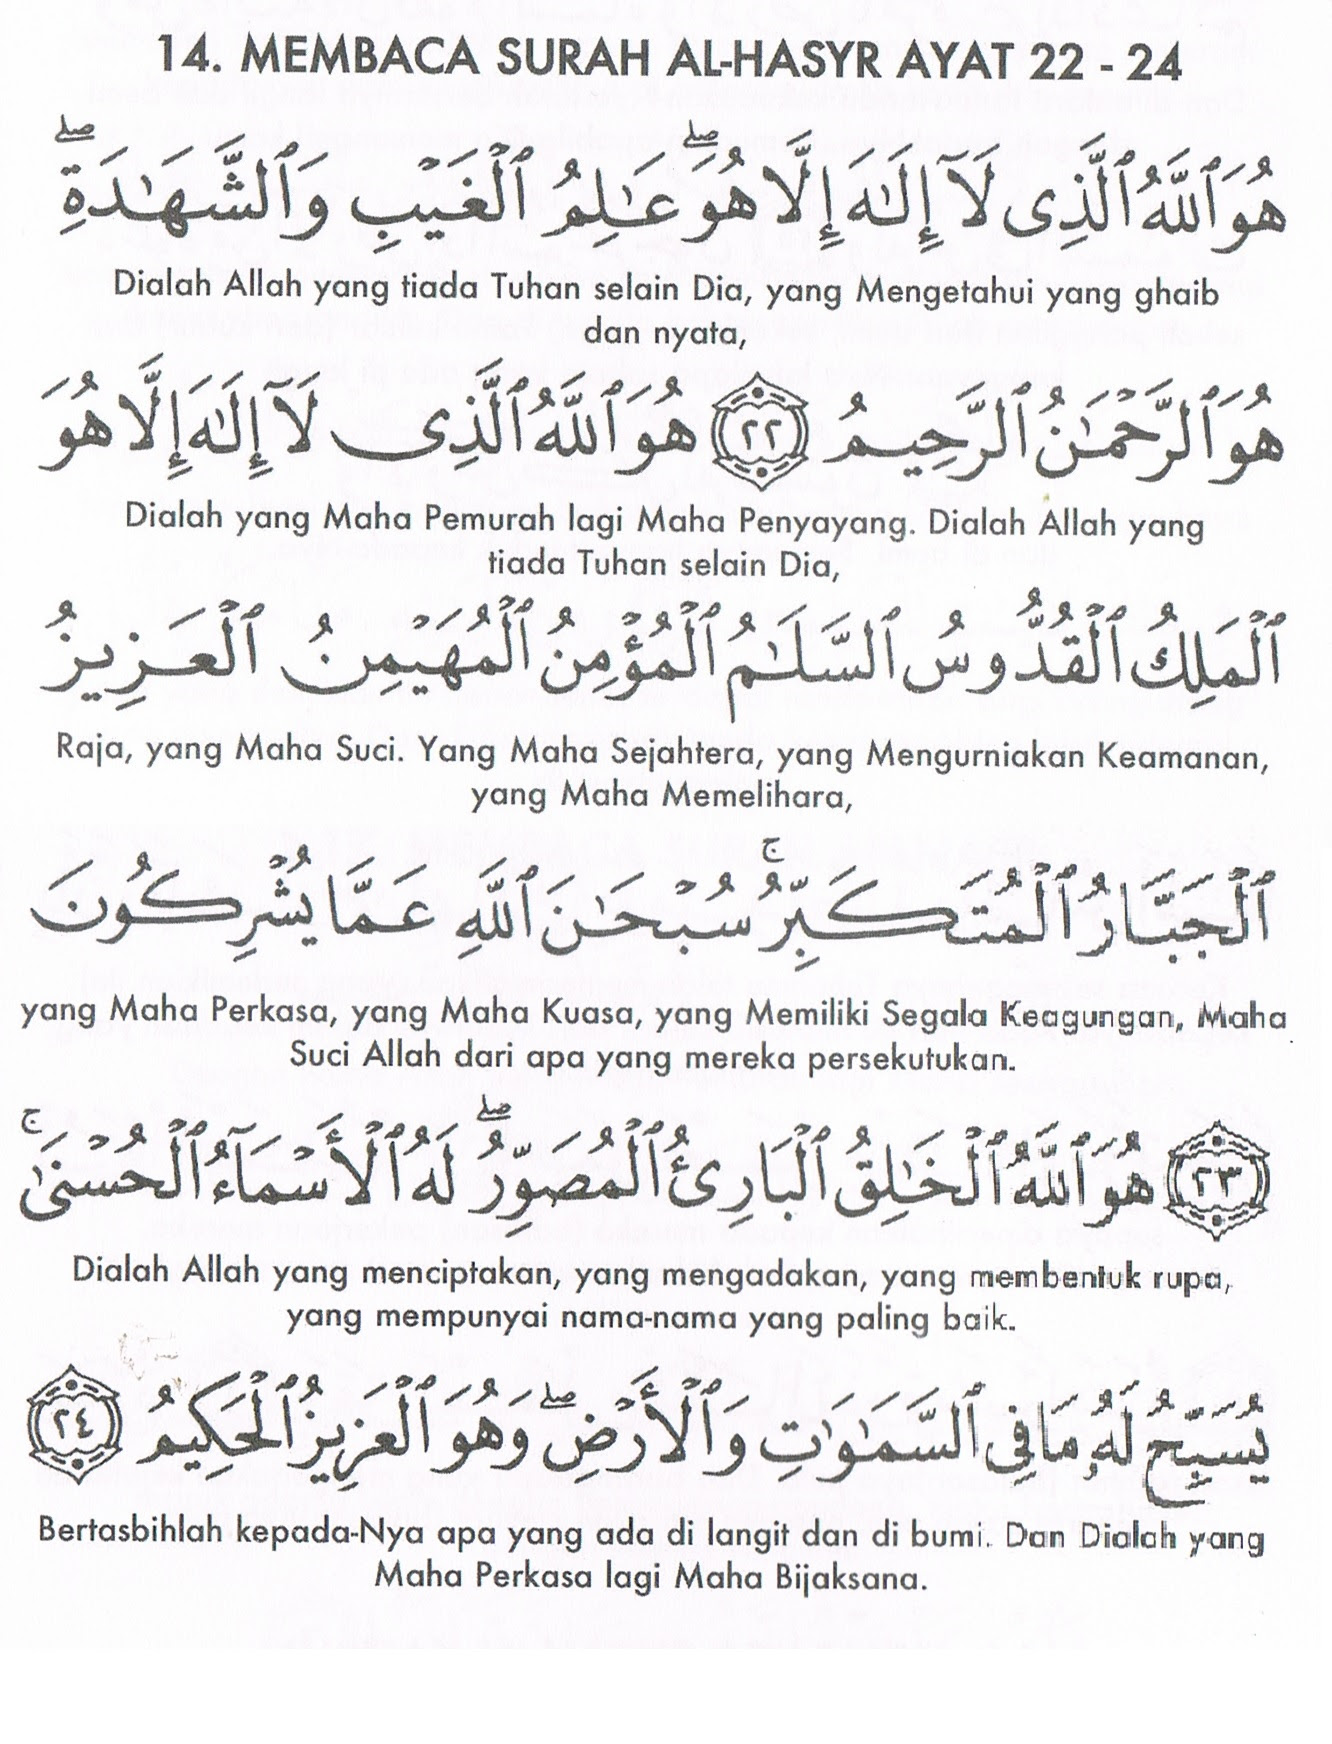 14. MEMBACA SURAH AL-HASYR AYAT 22 - 24
هُوَ ٱللَّهُ ٱلَّذِى لَآ إِلَـٰهَ إِلَّا هُوَ ۖ عَـٰلِمُ ٱلْغَيْبِ وَٱلشَّهَـٰدَةِ ۖ
Dialah Allah yang tiada Tuhan selain Dia, yang Mengetahui yang ghaib
dan nyata,
هُوَ ٱلرَّحْمَـٰنُ ٱلرَّحِيمُ ٢٢ هُوَ ٱللَّهُ ٱلَّذِى لَآ إِلَـٰهَ إِلَّا هُوَ
Dialah yang Maha Pemurah lagi Maha Penyayang. Dialah Allah yang
tiada Tuhan selain Dia,
ٱلْمَلِكُ ٱلْقُدُّوسُ ٱلسَّلَـٰمُ ٱلْمُؤْمِنُ ٱلْمُهَيْمِنُ ٱلْعَزِيزُ
Raja, yang Maha Suci. Yang Maha Sejahtera, yang Mengurniakan Keamanan,
yang Maha Memelihara,
ٱلْجَبَّارُ ٱلْمُتَكَبِّرُ ۚ سُبْحَـٰنَ ٱللَّهِ عَمَّا يُشْرِكُونَ
yang Maha Perkasa, yang Maha Kuasa, yang Memiliki Segala Keagungan, Maha
Suci Allah dari apa yang mereka persekutukan.
٢٣ هُوَ ٱللَّهُ ٱلْخَـٰلِقُ ٱلْبَارِئُ ٱلْمُصَوِّرُ ۖ لَهُ ٱلْأَسْمَآءُ ٱلْحُسْنَىٰ ۚ
Dialah Allah yang menciptakan, yang mengadakan, yang membentuk rupa,
yang mempunyai nama-nama yang paling baik.
يُسَبِّحُ لَهُۥ مَا فِى ٱلسَّمَـٰوَٰتِ وَٱلْأَرْضِ ۖ وَهُوَ ٱلْعَزِيزُ ٱلْحَكِيمُ ٢٤
Bertasbihlah kepada-Nya apa yang ada di langit dan di bumi. Dan Dialah yang
Maha Perkasa lagi Maha Bijaksana.